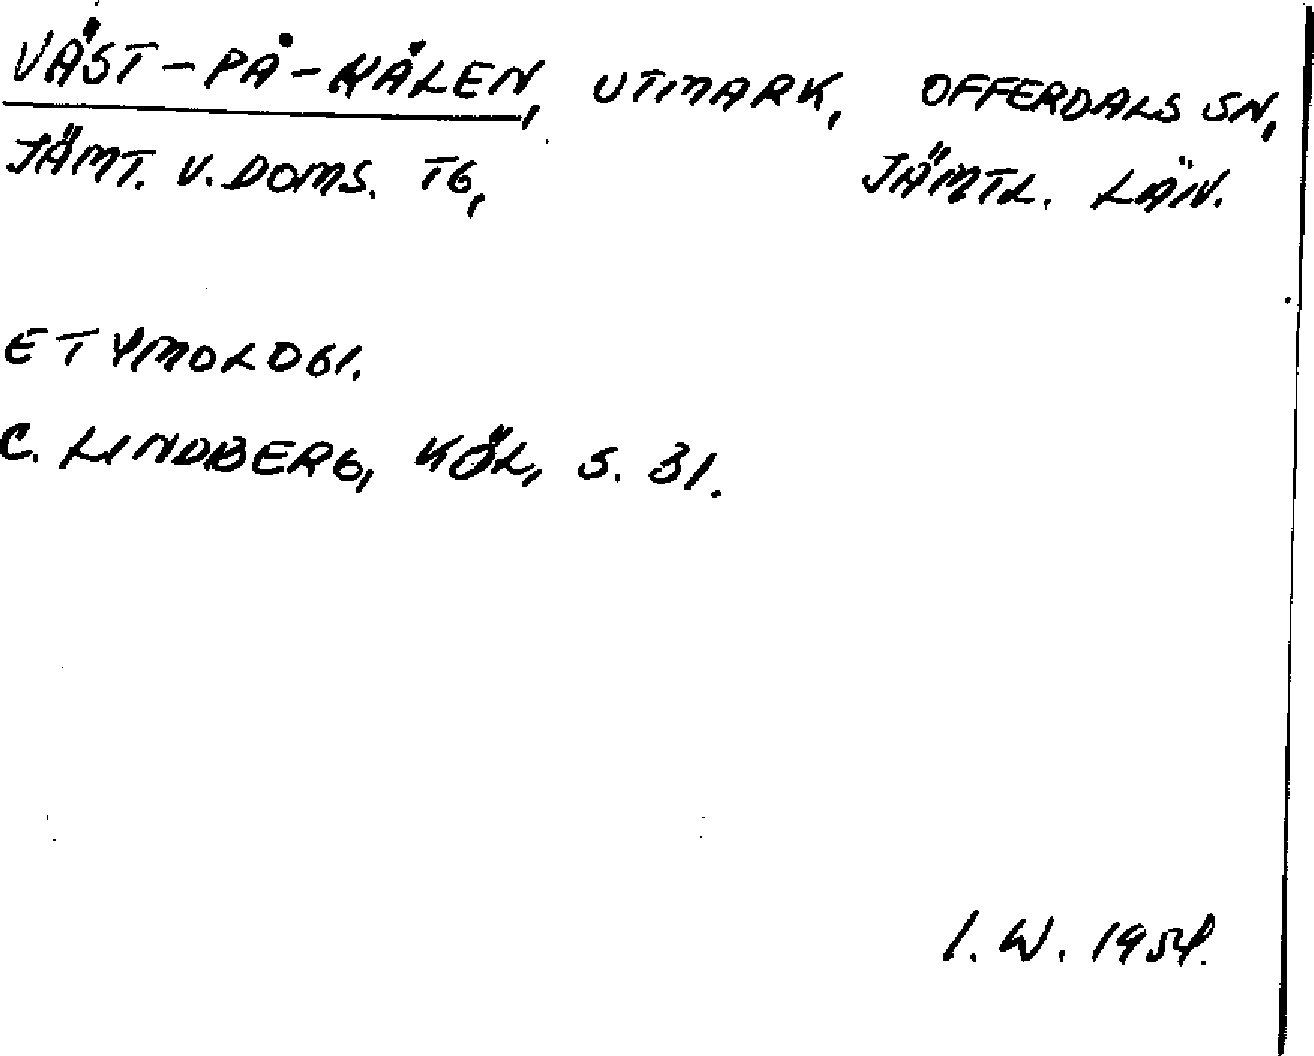 VÄST-PÅ-KÅLEN, UTMARK, OFFERDALS SN,
JÄMT. V. DOMS. TG, JÄMTL. LÄN.
ETYMOLOGI.
C. LINDBERG, KÖL, S. 31.
I. W. 1954.